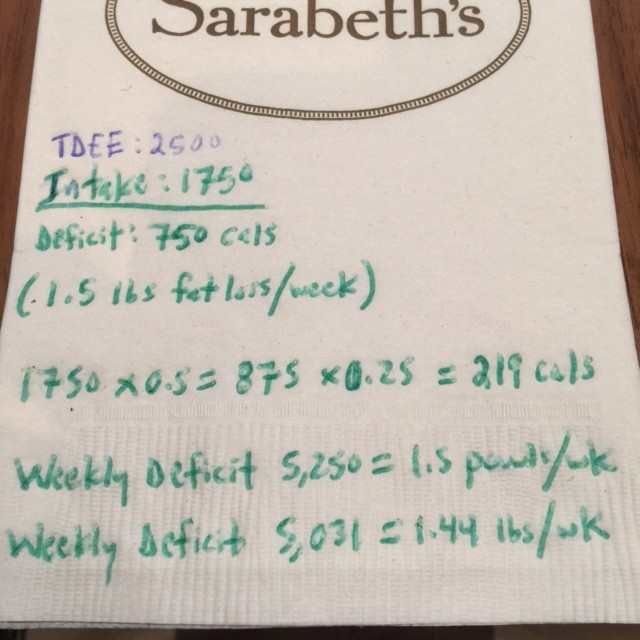 Sarabeth's
TDEE: 2500
Intake: 1750
Deficit: 750 cals
(1.5 lbs fat loss/week)
1750 x 0.5 = 875 x 0.25 = 219 cals
Weekly Deficit 5,250 = 1.5 pounds/wk
Weekly Deficit 5,031 = 1.44 lbs/wk